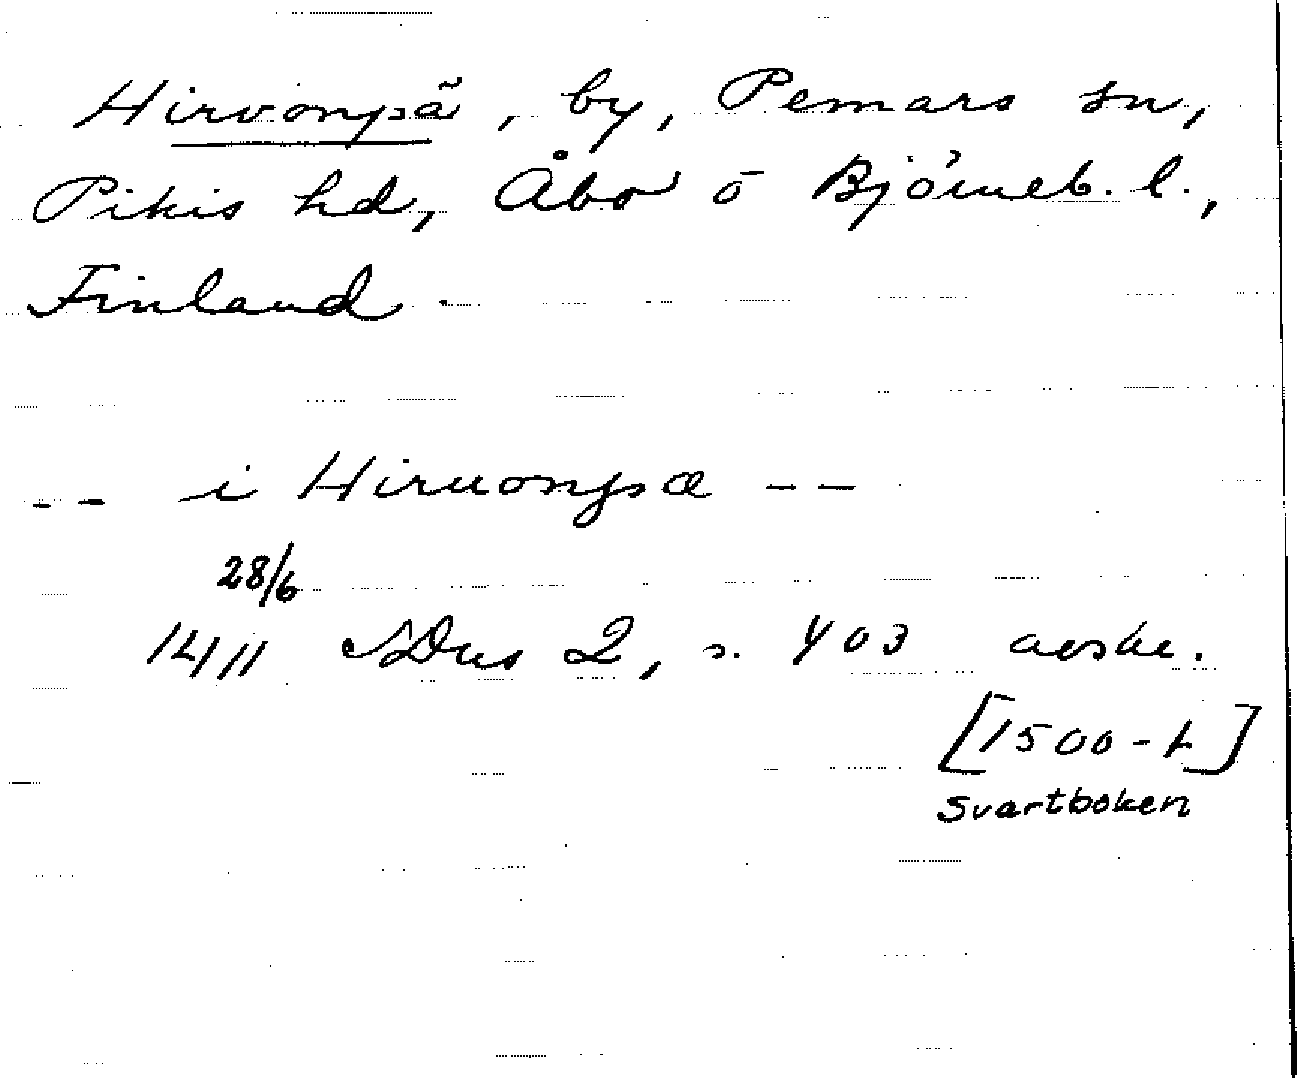 Hirvonpä, by, Pemars sn,
Pikis hd, Åbo o Björneb. l.,
Finland
-- i Hiruonpæ --
28/6
1411 SDns 2, s. 403 avskr.
[1500-t]
Svartboken